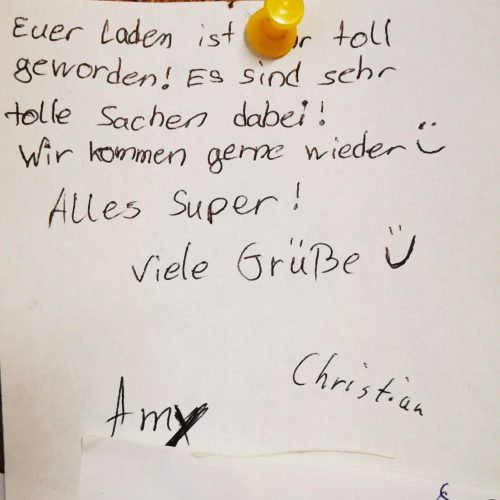 Euer Laden ist toll
geworden! Es sind sehr
tolle Sachen dabei!
Wir kommen gerne wieder
Alles Super!
Viele Grüße
Christian
Amy